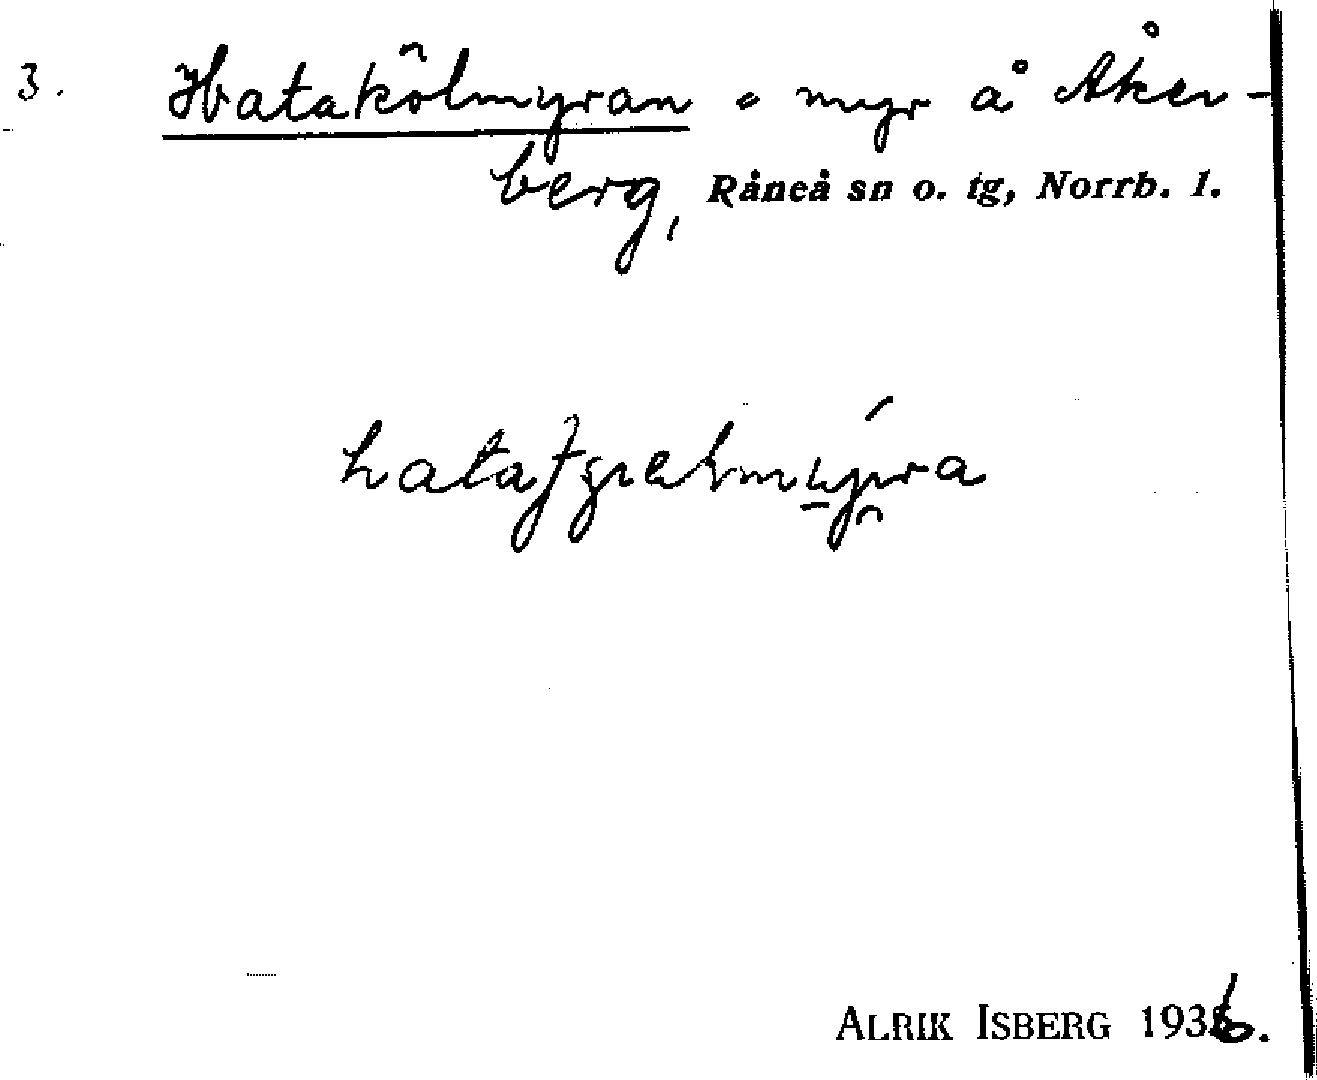 3. Hatakölmyran • myr å Åker-
berg, Råneå sn o. tg, Norrb. l.
ALRIK ISBERG 1936.